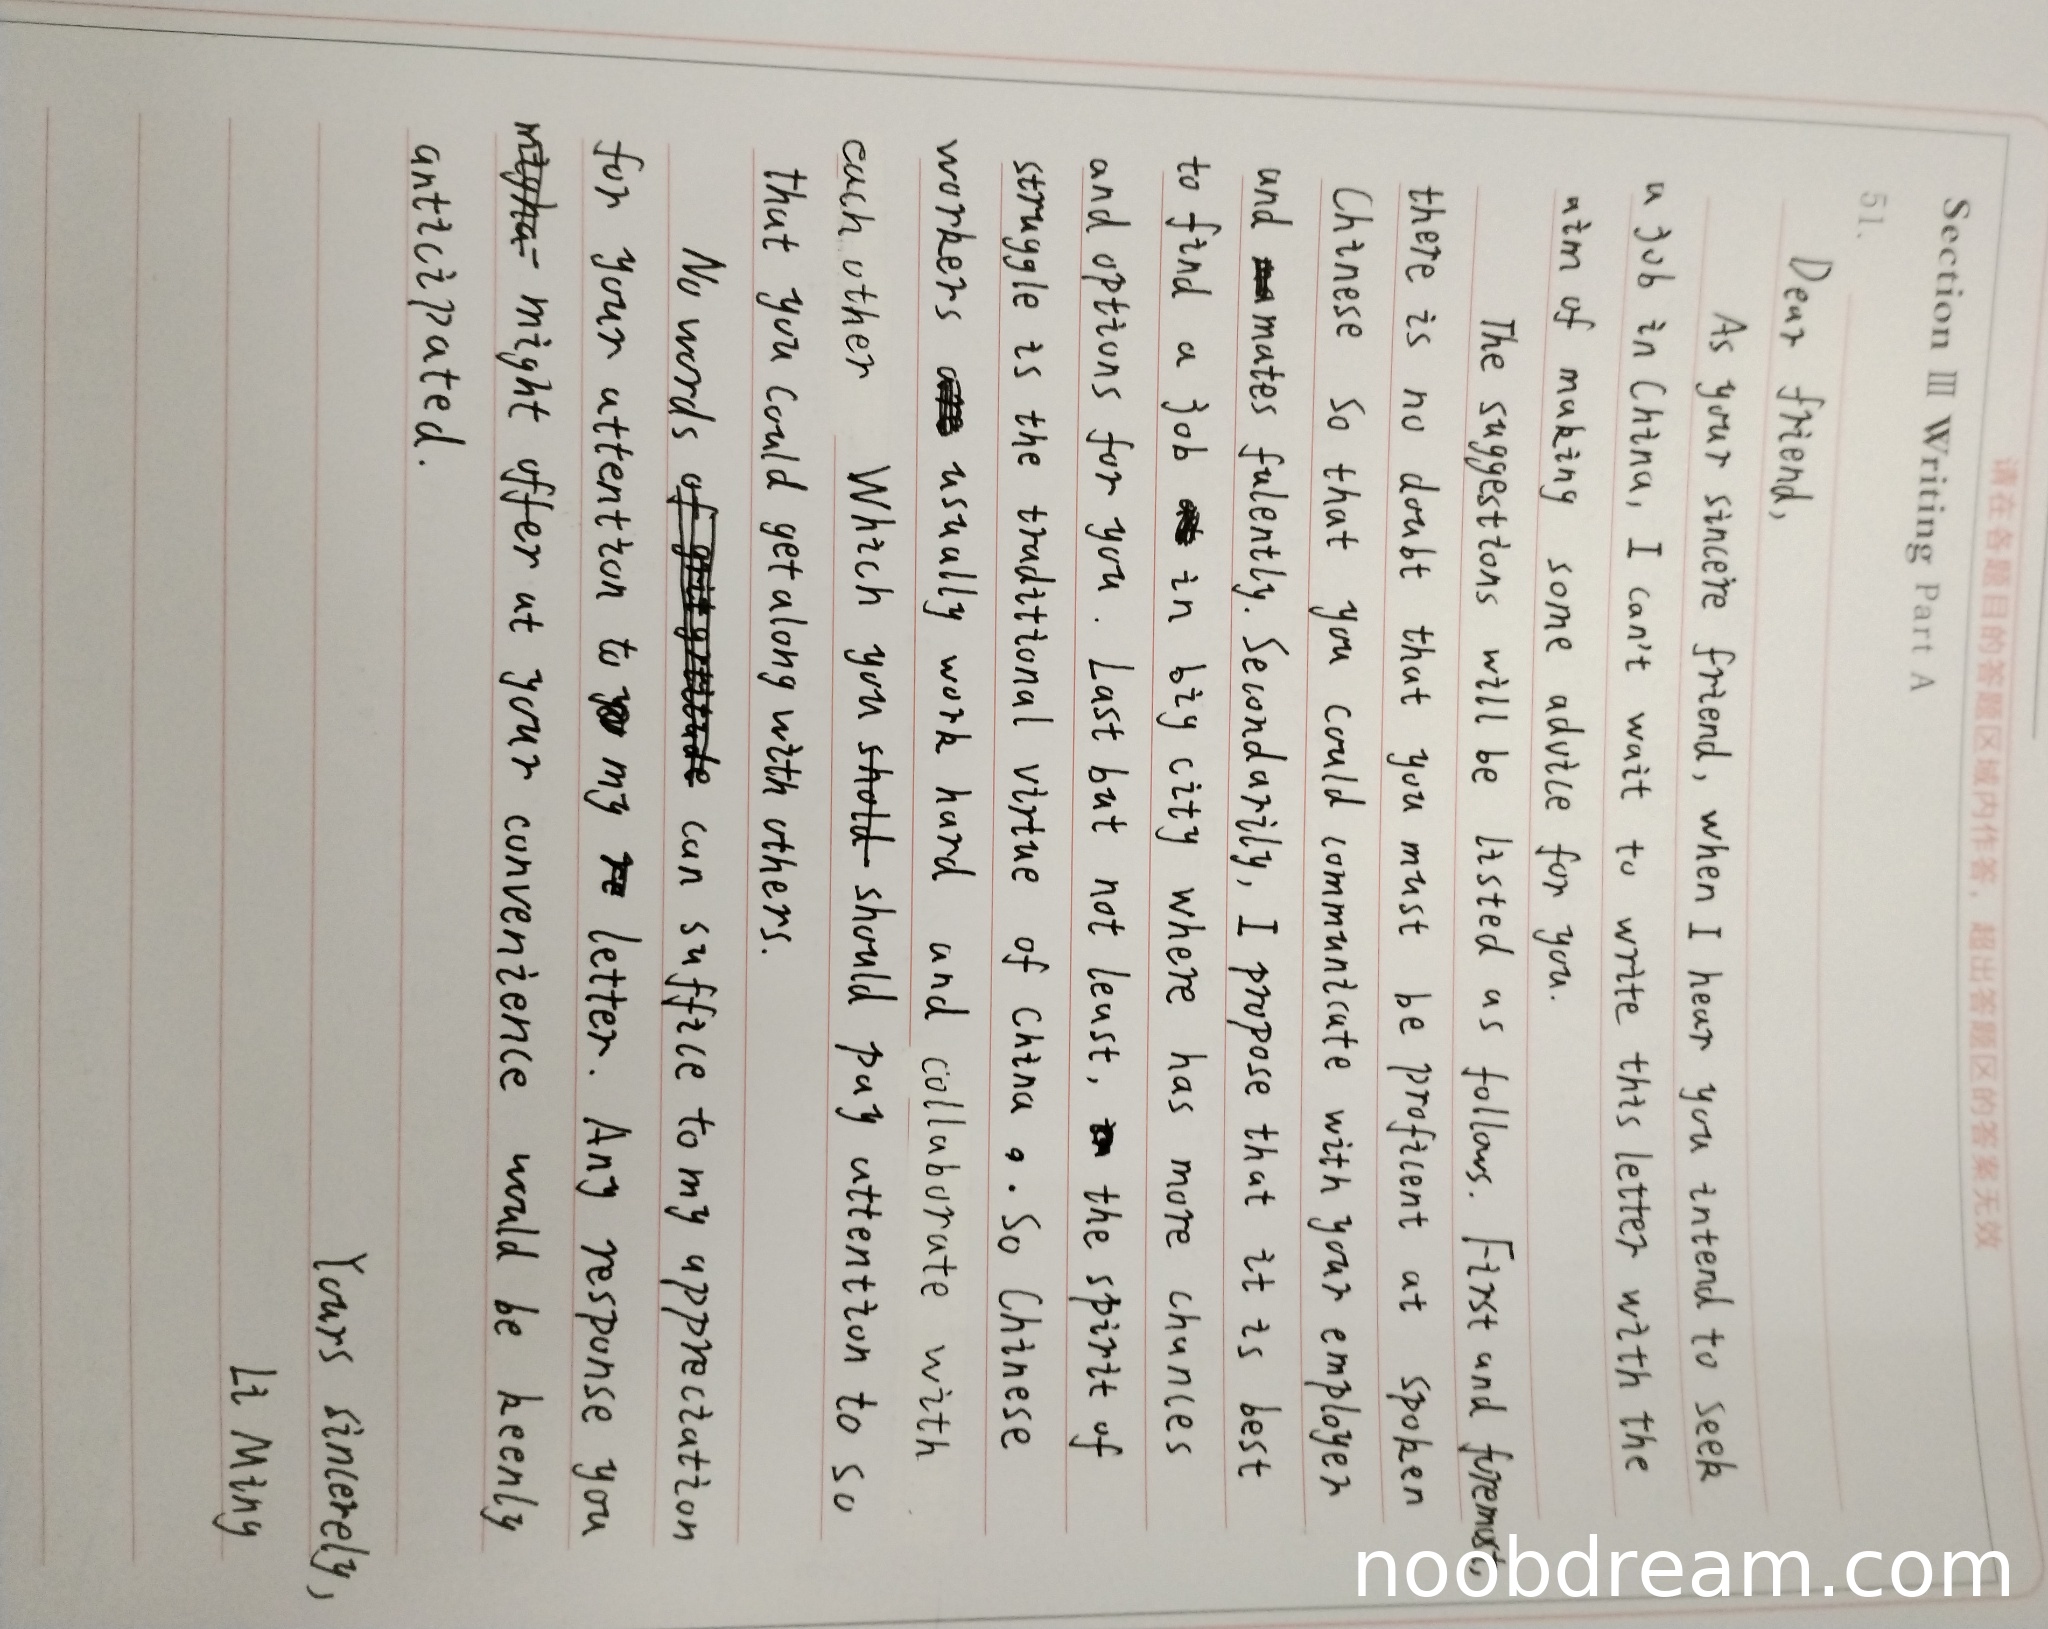 请在各题目的答题区域内作答，超出答题区的答案无效
Section III Writing Part A
51.
Dear friend,
As your sincere friend, when I hear you intend to seek
a job in China, I can't wait to write this letter with the
aim of making some advice for you.
The suggestions will be listed as follows. First and foremost,
there is no doubt that you must be proficient at spoken
Chinese so that you could communicate with your employer
and mates fulently. Secondarily, I propose that it is best
to find a job in big city where has more chances
and options for you. Last but not least, the spirit of
struggle is the traditional virtue of china. So Chinese
workers usually work hard and collaborate with
each other Which you shold should pay attention to so
that you could get along with others.
No words can suffice to my appreciation
for your attention to my letter. Any response you
might offer at your convenience would be keenly
anticipated.
Yours sincerely,
Li Ming
noobdream.com